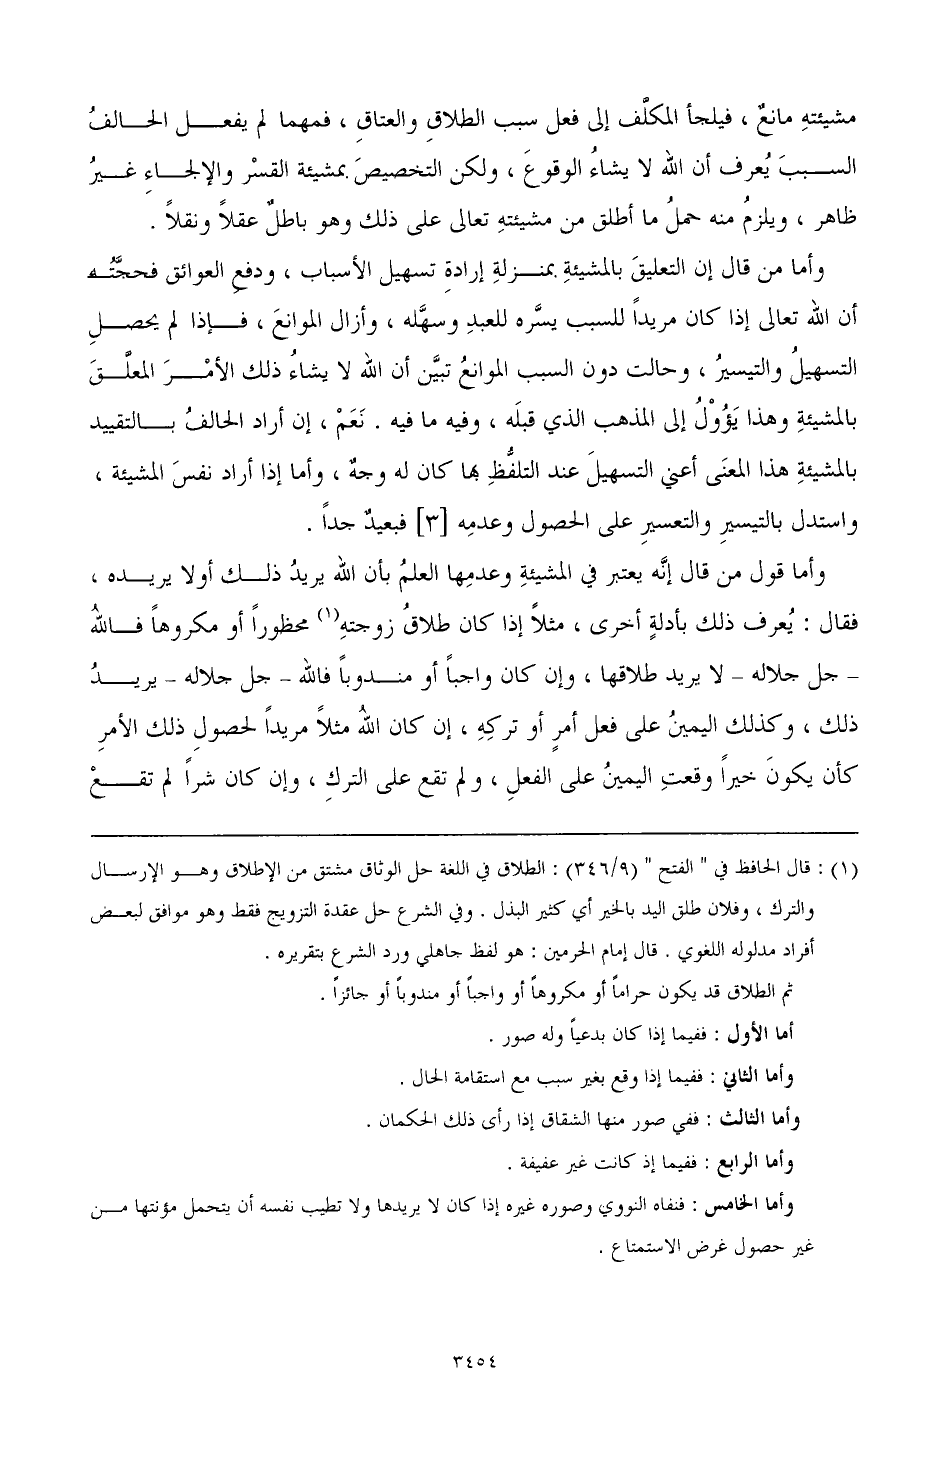 مشيئتهِ مانعٌ ، فيلجأ المكلَّف إلى فعل سبب الطلاقِ والعتاقِ ، فمهما لم يفعل الحالفُ
السببَ يُعرف أن الله لا يشاءُ الوقوعَ ، ولكن التخصيصَ بمشيئة القسْر والإلجاءِ غيرُ
ظاهر ، ويلزمُ منه حملُ ما أطلق من مشيئتهِ تعالى على ذلك وهو باطلٌ عقلاً ونقلاً .
وأما من قال إن التعليقَ بالمشيئةِ بمنزلةِ إرادةِ تسهيل الأسباب ، ودفعِ العوائق فحجتُّه
أن الله تعالى إذا كان مريداً للسبب يسَّره للعبدِ وسهَّله ، وأزال الموانعَ ، فإذا لم يحصلِ
التسهيلُ والتيسيرُ ، وحالت دون السبب الموانعُ تبيَّن أن الله لا يشاءُ ذلك الأمْرَ المعلَّقَ
بالمشيئةِ وهذا يَؤُوْلُ إلى المذهب الذي قبلَه ، وفيه ما فيه . نَعَمْ ، إن أراد الحالفُ بالتقييد
بالمشيئةِ هذا المعنَى أعني التسهيلَ عند التلفُّظِ بها كان له وجهٌ ، وأما إذا أراد نفسَ المشيئة ،
واستدل بالتيسيرِ والتعسيرِ على الحصول وعدمِه [٣] فبعيدٌ جداً .
وأما قول من قال إنَّه يعتبر في المشيئةِ وعدمِها العلمُ بأن الله يريدُ ذلك أولا يريده ،
فقال : يُعرف ذلك بأدلةٍ أخرى ، مثلاً إذا كان طلاقُ زوجتهِ(١) محظوراً أو مكروهاً فاللهُ
– جل جلاله – لا يريد طلاقها ، وإن كان واجباً أو مندوباً فالله – جل جلاله – يريدُ
ذلك ، وكذلك اليمينُ على فعل أمرٍ أو تركِهِ ، إن كان اللهُ مثلاً مريداً لحصولِ ذلك الأمرِ
كأن يكونَ خيراً وقعتِ اليمينُ على الفعلِ ، ولم تقع على التركِ ، وإن كان شراً لم تقعْ
(١) : قال الحافظ في " الفتح " (٣٤٦/٩) : الطلاق في اللغة حل الوثاق مشتق من الإطلاق وهو الإرسال
والترك ، وفلان طلق اليد بالخير أي كثير البذل . وفي الشرع حل عقدة التزويج فقط وهو موافق لبعض
أفراد مدلوله اللغوي . قال إمام الحرمين : هو لفظ جاهلي ورد الشرع بتقريره .
ثم الطلاق قد يكون حراماً أو مكروهاً أو واجباً أو مندوباً أو جائزاً .
أما الأول : ففيما إذا كان بدعياً وله صور .
وأما الثاني : ففيما إذا وقع بغير سبب مع استقامة الحال .
وأما الثالث : ففي صور منها الشقاق إذا رأى ذلك الحكمان .
وأما الرابع : ففيما إذ كانت غير عفيفة .
وأما الخامس : فنفاه النووي وصوره غيره إذا كان لا يريدها ولا تطيب نفسه أن يتحمل مؤنتها من
غير حصول غرض الاستمتاع .
٣٤٥٤